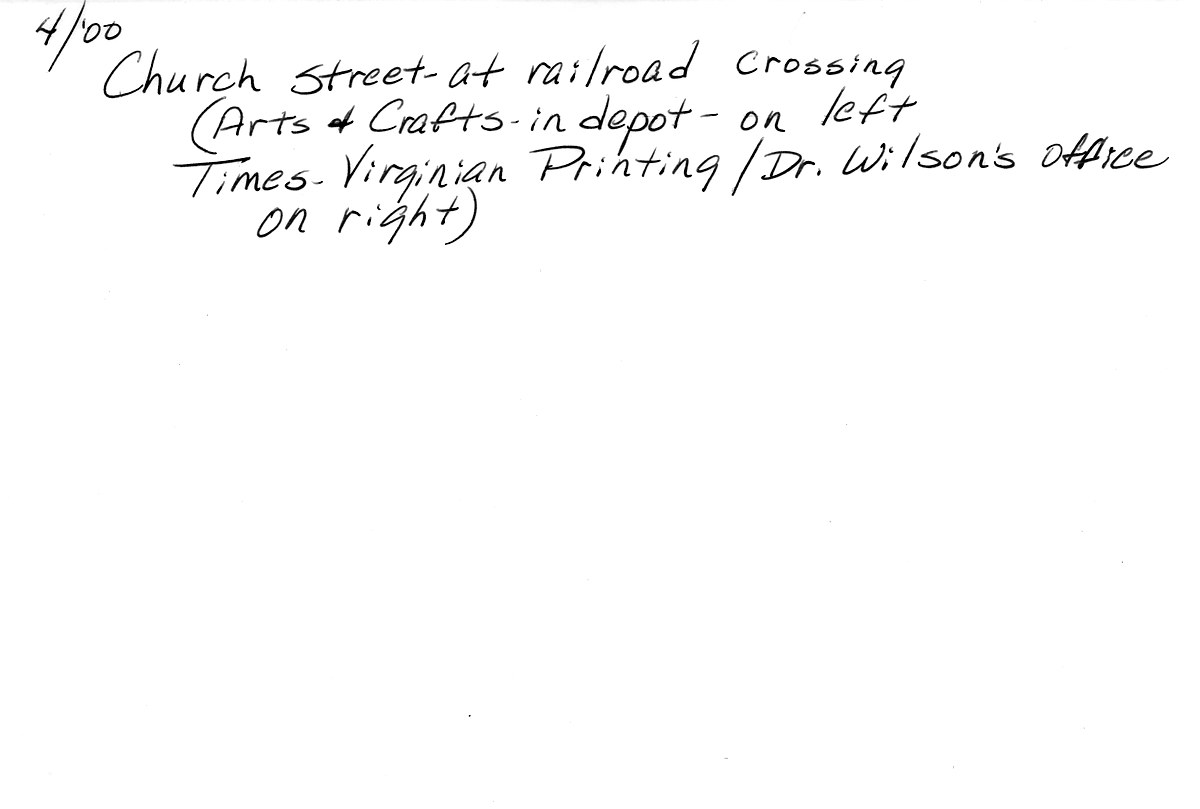 4/'00
Church street-at railroad crossing
(Arts & Crafts-in depot- on left
Times-Virginian Printing / Dr. Wilson's office
on right)